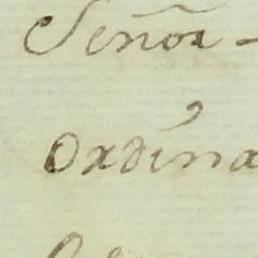 Señor -
Ordina